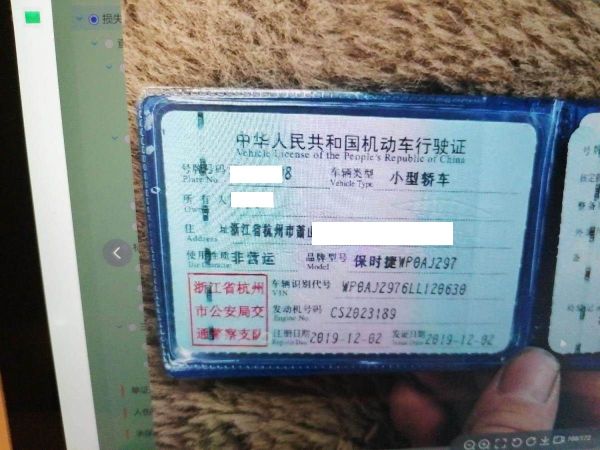 损失
中华人民共和国机动车行驶证
Vehicle License of the People's Republic of China
号牌号码 8 车辆类型 小型轿车
Plate No. Vehicle Type
所有人
住址 浙江省杭州市萧山
Address
使用性质 非营运 品牌型号 保时捷WP0AJ297
Use Character Model
浙江省杭州
市公安局交
通警察支队
车辆识别代号 WP0AJ2976LL120630
VIN
发动机号码 CSZ023189
Engine No.
注册日期 2019-12-02 发证日期 2019-12-02
Register Date Issue Date
168/172